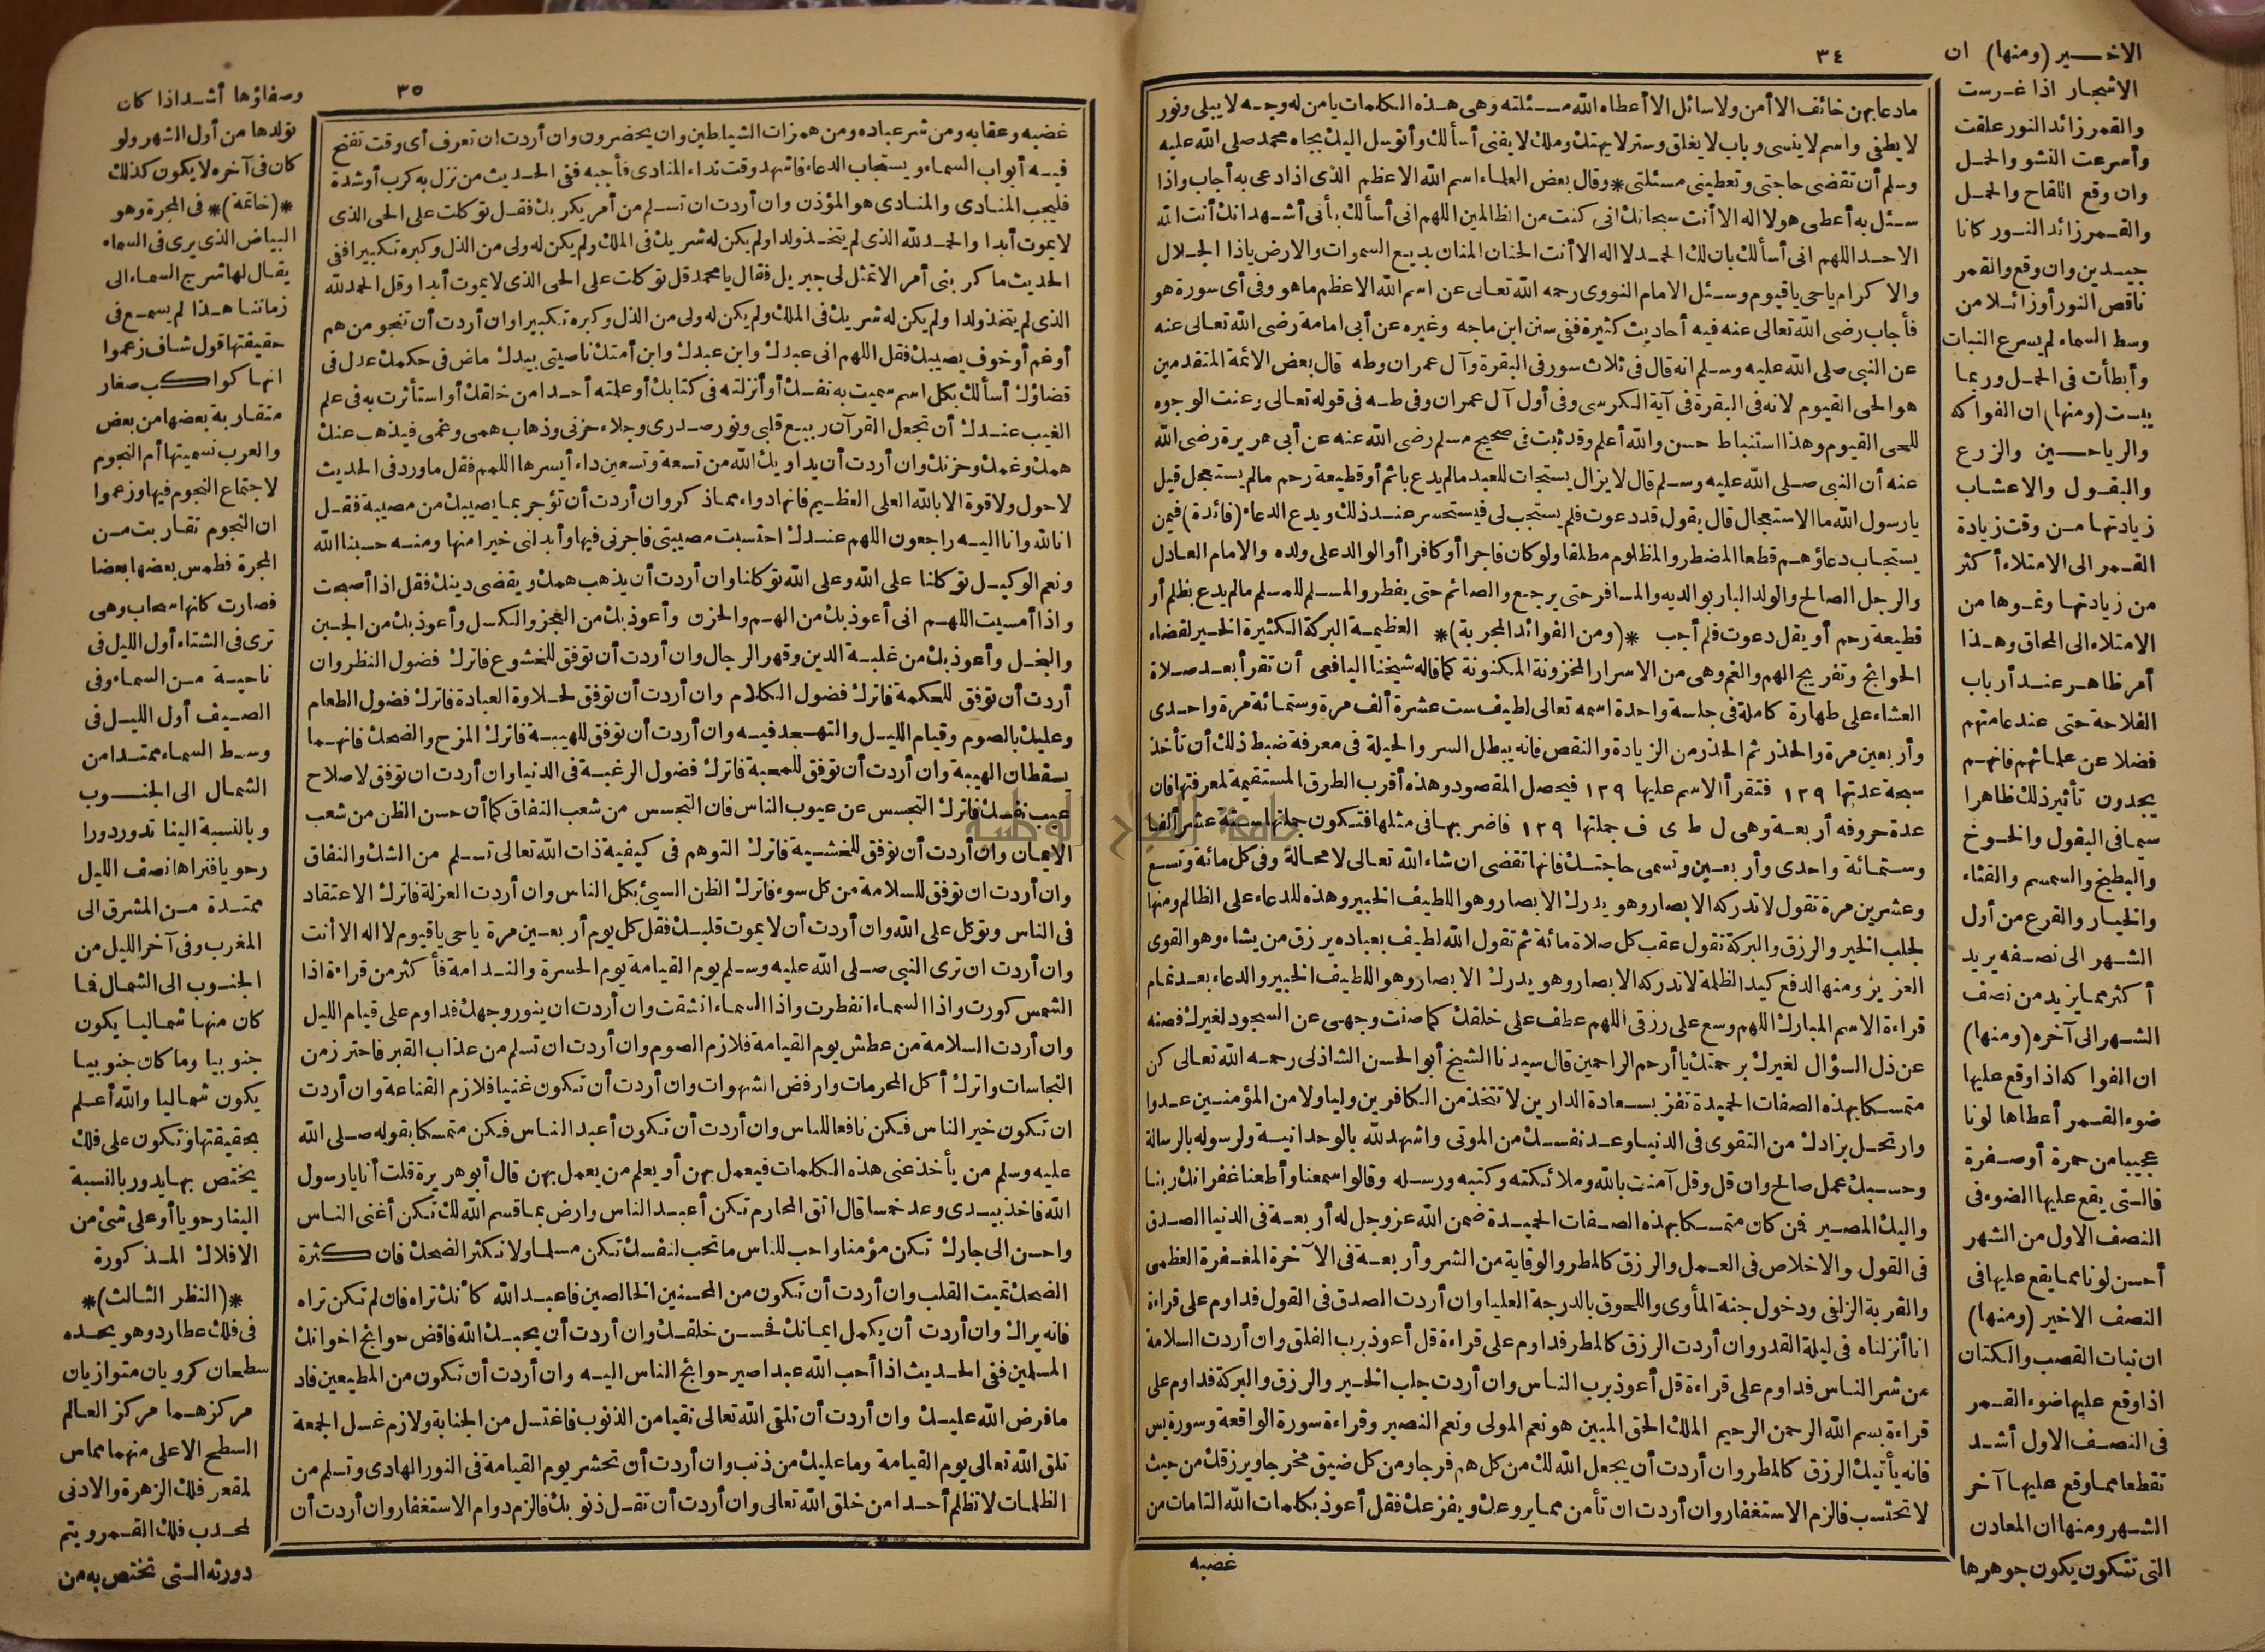 ٣٤
مادعا بهن خائف الا أمن ولا سائل الا أعطاه الله مسئلته وهى هذه الكلمات يا من له وجه لا يبلى ونور
لا يطفى واسم لا ينسى وباب لا يغلق وستر لا يهتك وملك لا يفنى أسألك وأتوسل اليك بجاه محمد صلى الله عليه
وسلم أن تقضى حاجتى وتعطينى مسئلتى * وقال بعض العلماء اسم الله الاعظم الذى اذا دعى به أجاب واذا
سئل به أعطى هو لا اله الا أنت سبحانك انى كنت من الظالمين اللهم انى أسألك بأنى أشهد انك أنت الله
الاحد اللهم انى أسألك بان لك الحمد لا اله الا أنت الحنان المنان بديع السموات والارض ياذا الجلال
والاكرام يا حى يا قيوم وسئل الامام النووى رحمه الله تعالى عن اسم الله الاعظم ما هو وفى أى سورة هو
فأجاب رضى الله تعالى عنه فيه أحاديث كثيرة ففى سنن ابن ماجه وغيره عن أبى امامة رضى الله تعالى عنه
عن النبى صلى الله عليه وسلم انه قال فى ثلاث سور فى البقرة وآل عمران وطه قال بعض الائمة المتقدمين
هو الحى القيوم لانه فى البقرة فى آية الكرسى وفى أول آل عمران وفى طه فى قوله تعالى وعنت الوجوه
للحى القيوم وهذا استنباط حسن والله أعلم وقد ثبت فى صحيح مسلم رضى الله عنه عن أبى هريرة رضى الله
عنه أن النبى صلى الله عليه وسلم قال لا يزال يستجاب للعبد مالم يدع باثم أو قطيعة رحم مالم يستعجل قيل
يا رسول الله ما الاستعجال قال يقول قد دعوت فلم يستجب لى فيستحسر عند ذلك ويدع الدعاء (فائدة) فيمن
يستجاب دعاؤهم قطعا المضطر والمظلوم مطلقا ولو كان فاجرا أو كافرا أو الوالد على ولده والامام العادل
والرجل الصالح والولد البار بوالديه والمسافر حتى يرجع والصائم حتى يفطر والمسلم للمسلم مالم يدع بظلم أو
قطيعة رحم أو يقل دعوت فلم أجب * (ومن الفوائد المجربة) * العظيمة البركة الكثيرة الخير لقضاء
الحوائج وتفريج الهم والغم وهى من الاسرار المخزونة المكنونة كما قاله شيخنا اليافعى أن تقرأ بعد صلاة
العشاء على طهارة كاملة فى جلسة واحدة اسمه تعالى لطيف ست عشرة ألف مرة وستمائة مرة واحدى
وأربعين مرة والحذر ثم الحذر من الزيادة والنقص فانه يبطل السر والحيلة فى معرفة ضبط ذلك أن تأخذ
سبحة عدتها ١٢٩ فتقرأ الاسم عليها ١٢٩ فيحصل المقصود وهذه أقرب الطرق المستقيمة لمعرفتها فان
عدة حروفه أربعة وهى ل ط ى ف جملتها ١٢٩ فاضربها فى مثلها فتكون جملتها ستة عشر ألفا
وستمائة واحدى وأربعين وتسمى حاجتك فانها تقضى ان شاء الله تعالى لا محالة وفى كل مائة وتسع
وعشرين مرة تقول لا تدركه الابصار وهو يدرك الابصار وهو اللطيف الخبير وهذه للدعاء على الظالم ومنها
لجلب الخير والرزق والبركة تقول عقب كل صلاة مائة ثم تقول الله لطيف بعباده يرزق من يشاء وهو القوى
العزيز ومنها لدفع كيد الظلمة لا تدركه الابصار وهو يدرك الابصار وهو اللطيف الخبير والدعاء بعد تمام
قراءة الاسم المبارك اللهم وسع على رزقى اللهم عطف على خلقك كما صنت وجهى عن السجود لغيرك فصنه
عن ذل السؤال لغيرك برحمتك يا أرحم الراحمين قال سيدنا الشيخ أبو الحسن الشاذلى رحمه الله تعالى كن
متمسكا بهذه الصفات الحميدة تفز بسعادة الدارين لا تتخذ من الكافرين وليا ولا من المؤمنين عدوا
وارتحل بزادك من التقوى فى الدنيا وعد نفسك من الموتى واشهد لله بالوحدانية ولرسوله بالرسالة
وحسبك عمل صالح وان قل وقل آمنت بالله وملائكته وكتبه ورسله وقالوا سمعنا وأطعنا غفرانك ربنا
واليك المصير فمن كان متمسكا بهذه الصفات الحميدة ضمن الله عز وجل له أربعة فى الدنيا الصدق
فى القول والاخلاص فى العمل والرزق كالمطر والوقاية من الشر وأربعة فى الآخرة المغفرة العظمى
والقربة الزلفى ودخول جنة المأوى واللحوق بالدرجة العليا وان أردت الصدق فى القول فداوم على قراءة
انا أنزلناه فى ليلة القدر وان أردت الرزق كالمطر فداوم على قراءة قل أعوذ برب الفلق وان أردت السلامة
من شر الناس فداوم على قراءة قل أعوذ برب الناس وان أردت جلب الخير والرزق والبركة فداوم على
قراءة بسم الله الرحمن الرحيم الملك الحق المبين هو نعم المولى ونعم النصير وقراءة سورة الواقعة وسورة يس
فانه يأتيك الرزق كالمطر وان أردت أن يجعل الله لك من كل هم فرجا ومن كل ضيق مخرجا ويرزقك من حيث
لا تحتسب فالزم الاستغفار وان أردت ان تأمن مما يروعك ويفزعك فقل أعوذ بكلمات الله التامات من
غضبه
الاخير (ومنها) ان
الاشجار اذا غرست
والقمر زائد النور علقت
وأسرعت النشو والحمل
وان وقع اللقاح والحمل
والقمر زائد النور كانا
جيدين وان وقع والقمر
ناقص النور أو زائلا من
وسط السماء لم يسرع النبات
وأبطأت فى الحمل وربما
يبست (ومنها) ان الفواكه
والرياحين والزرع
والبقول والاعشاب
زيادتها من وقت زيادة
القمر الى الامتلاء أكثر
من زيادتها ونموها من
الامتلاء الى المحاق وهذا
أمر ظاهر عند أرباب
الفلاحة حتى عند عامتهم
فضلا عن علمائهم فانهم
يجدون تأثير ذلك ظاهرا
سيما فى البقول والخوخ
والبطيخ والسمسم والقثاء
والخيار والقرع من أول
الشهر الى نصفه يزيد
أكثر مما يزيد من نصف
الشهر الى آخره (ومنها)
ان الفواكه اذا وقع عليها
ضوء القمر أعطاها لونا
عجيبا من حمرة أو صفرة
فالتى يقع عليها الضوء فى
النصف الاول من الشهر
أحسن لونا مما يقع عليها فى
النصف الاخير (ومنها)
ان نبات القصب والكتان
اذا وقع عليها ضوء القمر
فى النصف الاول أشد
تقطعا مما وقع عليها آخر
الشهر ومنها ان المعادن
التى تتكون يكون جوهرها
٣٥
غضبه وعقابه ومن شر عباده ومن همزات الشياطين وان يحضرون وان أردت ان تعرف أى وقت تفتح
فيه أبواب السماء ويستجاب الدعاء فاشهد وقت نداء المنادى فأجبه ففى الحديث من نزل به كرب أو شدة
فليجب المنادى والمنادى هو المؤذن وان أردت ان تسلم من أمر يكربك فقل توكلت على الحى الذى
لا يموت أبدا والحمد لله الذى لم يتخذ ولدا ولم يكن له شريك فى الملك ولم يكن له ولى من الذل وكبره تكبيرا ففى
الحديث ما كربنى أمر الا تمثل لى جبريل فقال يا محمد قل توكلت على الحى الذى لا يموت أبدا وقل الحمد لله
الذى لم يتخذ ولدا ولم يكن له شريك فى الملك ولم يكن له ولى من الذل وكبره تكبيرا وان أردت أن تنجو من هم
أو غم أو خوف يصيبك فقل اللهم انى عبدك وابن عبدك وابن أمتك ناصيتى بيدك ماض فى حكمك عدل فى
قضاؤك أسألك بكل اسم سميت به نفسك أو أنزلته فى كتابك أو علمته أحدا من خلقك أو استأثرت به فى علم
الغيب عندك أن تجعل القرآن ربيع قلبى ونور صدرى وجلاء حزنى وذهاب همى وغمى فيذهب عنك
همك وغمك وحزنك وان أردت أن يداويك الله من تسعة وتسعين داء أيسرها اللمم فقل ما ورد فى الحديث
لا حول ولا قوة الا بالله العلى العظيم فانها دواء مما ذكر وان أردت أن تؤجر بما يصيبك من مصيبة فقل
انا لله وانا اليه راجعون اللهم عندك احتسبت مصيبتى فاجرنى فيها وأبدلنى خيرا منها ومنه حسبنا الله
ونعم الوكيل توكلنا على الله وعلى الله توكلنا وان أردت أن يذهب همك ويقضى دينك فقل اذا أصبحت
واذا أمسيت اللهم انى أعوذ بك من الهم والحزن وأعوذ بك من العجز والكسل وأعوذ بك من الجبن
والبخل وأعوذ بك من غلبة الدين وقهر الرجال وان أردت أن توفق للخشوع فاترك فضول النظر وان
أردت أن توفق للحكمة فاترك فضول الكلام وان أردت أن توفق لحلاوة العبادة فاترك فضول الطعام
وعليك بالصوم وقيام الليل والتهجد فيه وان أردت أن توفق للهيبة فاترك المزح والضحك فانهما
يسقطان الهيبة وان أردت أن توفق للمحبة فاترك فضول الرغبة فى الدنيا وان أردت ان توفق لاصلاح
عيب نفسك فاترك التجسس عن عيوب الناس فان التجسس من شعب النفاق كما أن حسن الظن من شعب
الايمان وان أردت أن توفق للخشية فاترك التوهم فى كيفية ذات الله تعالى تسلم من الشك والنفاق
وان أردت ان توفق للسلامة من كل سوء فاترك الظن السيئ بكل الناس وان أردت العزلة فاترك الاعتقاد
فى الناس وتوكل على الله وان أردت أن لا يموت قلبك فقل كل يوم أربعين مرة يا حى يا قيوم لا اله الا أنت
وان أردت ان ترى النبى صلى الله عليه وسلم يوم القيامة يوم الحسرة والندامة فأكثر من قراءة اذا
الشمس كورت واذا السماء انفطرت واذا السماء انشقت وان أردت ان ينور وجهك فداوم على قيام الليل
وان أردت السلامة من عطش يوم القيامة فلازم الصوم وان أردت ان تسلم من عذاب القبر فاحترز من
النجاسات واترك أكل المحرمات وارفض الشهوات وان أردت أن تكون غنيا فلازم القناعة وان أردت
ان تكون خير الناس فكن نافعا للناس وان أردت أن تكون أعبد الناس فكن متمسكا بقوله صلى الله
عليه وسلم من يأخذ عنى هذه الكلمات فيعمل بهن أو يعلم من يعمل بهن قال أبو هريرة قلت أنا يا رسول
الله فاخذ بيدى وعد خمسا قال اتق المحارم تكن أعبد الناس وارض بما قسم الله لك تكن أغنى الناس
واحسن الى جارك تكن مؤمنا واحب للناس ما تحب لنفسك تكن مسلما ولا تكثر الضحك فان كثرة
الضحك تميت القلب وان أردت أن تكون من المحسنين الخالصين فاعبد الله كأنك تراه فان لم تكن تراه
فانه يراك وان أردت أن يكمل ايمانك فحسن خلقك وان أردت أن يحبك الله فاقض حوائج اخوانك
المسلمين ففى الحديث اذا أحب الله عبدا صير حوائج الناس اليه وان أردت أن تكون من المطيعين فاد
ما فرض الله عليك وان أردت أن تلقى الله تعالى نقيا من الذنوب فاغتسل من الجنابة ولازم غسل الجمعة
تلق الله تعالى يوم القيامة وما عليك من ذنب وان أردت أن تحشر يوم القيامة فى النور الهادى وتسلم من
الظلمات لا تظلم أحدا من خلق الله تعالى وان أردت أن تقل ذنوبك فالزم دوام الاستغفار وان أردت أن
وصفاؤها أشد اذا كان
تولدها من أول الشهر ولو
كان فى آخره لا يكون كذلك
* (خاتمة) * فى المجرة وهو
البياض الذى يرى فى السماء
يقال لها شرج السماء الى
زماننا هذا لم يسمع فى
حقيقتها قول شاف زعموا
انها كواكب صغار
متقاربة بعضها من بعض
والعرب تسميتها أم النجوم
لاجتماع النجوم فيها وزعموا
ان النجوم تقاربت من
المجرة فطمس بعضها بعضا
فصارت كانها سحاب وهى
ترى فى الشتاء أول الليل فى
ناحية من السماء وفى
الصيف أول الليل فى
وسط السماء ممتدا من
الشمال الى الجنوب
وبالنسبة الينا تدور دورا
رحويا فتراها نصف الليل
ممتدة من المشرق الى
المغرب وفى آخر الليل من
الجنوب الى الشمال فما
كان منها شماليا يكون
جنوبيا وما كان جنوبيا
يكون شماليا والله أعلم
بحقيقتها وتكون على فلك
يختص بها يدور بالنسبة
الينا رحويا أو على شئ من
الافلاك المذكورة
* (النظر الثالث) *
فى فلك عطارد وهو يحده
سطحان كرويان متوازيان
مركزهما مركز العالم
السطح الاعلى منهما مماس
لمقعر فلك الزهرة والادنى
لمحدب فلك القمر ويتم
دورته التى تختص به من
جامعة النجاح الوطنية